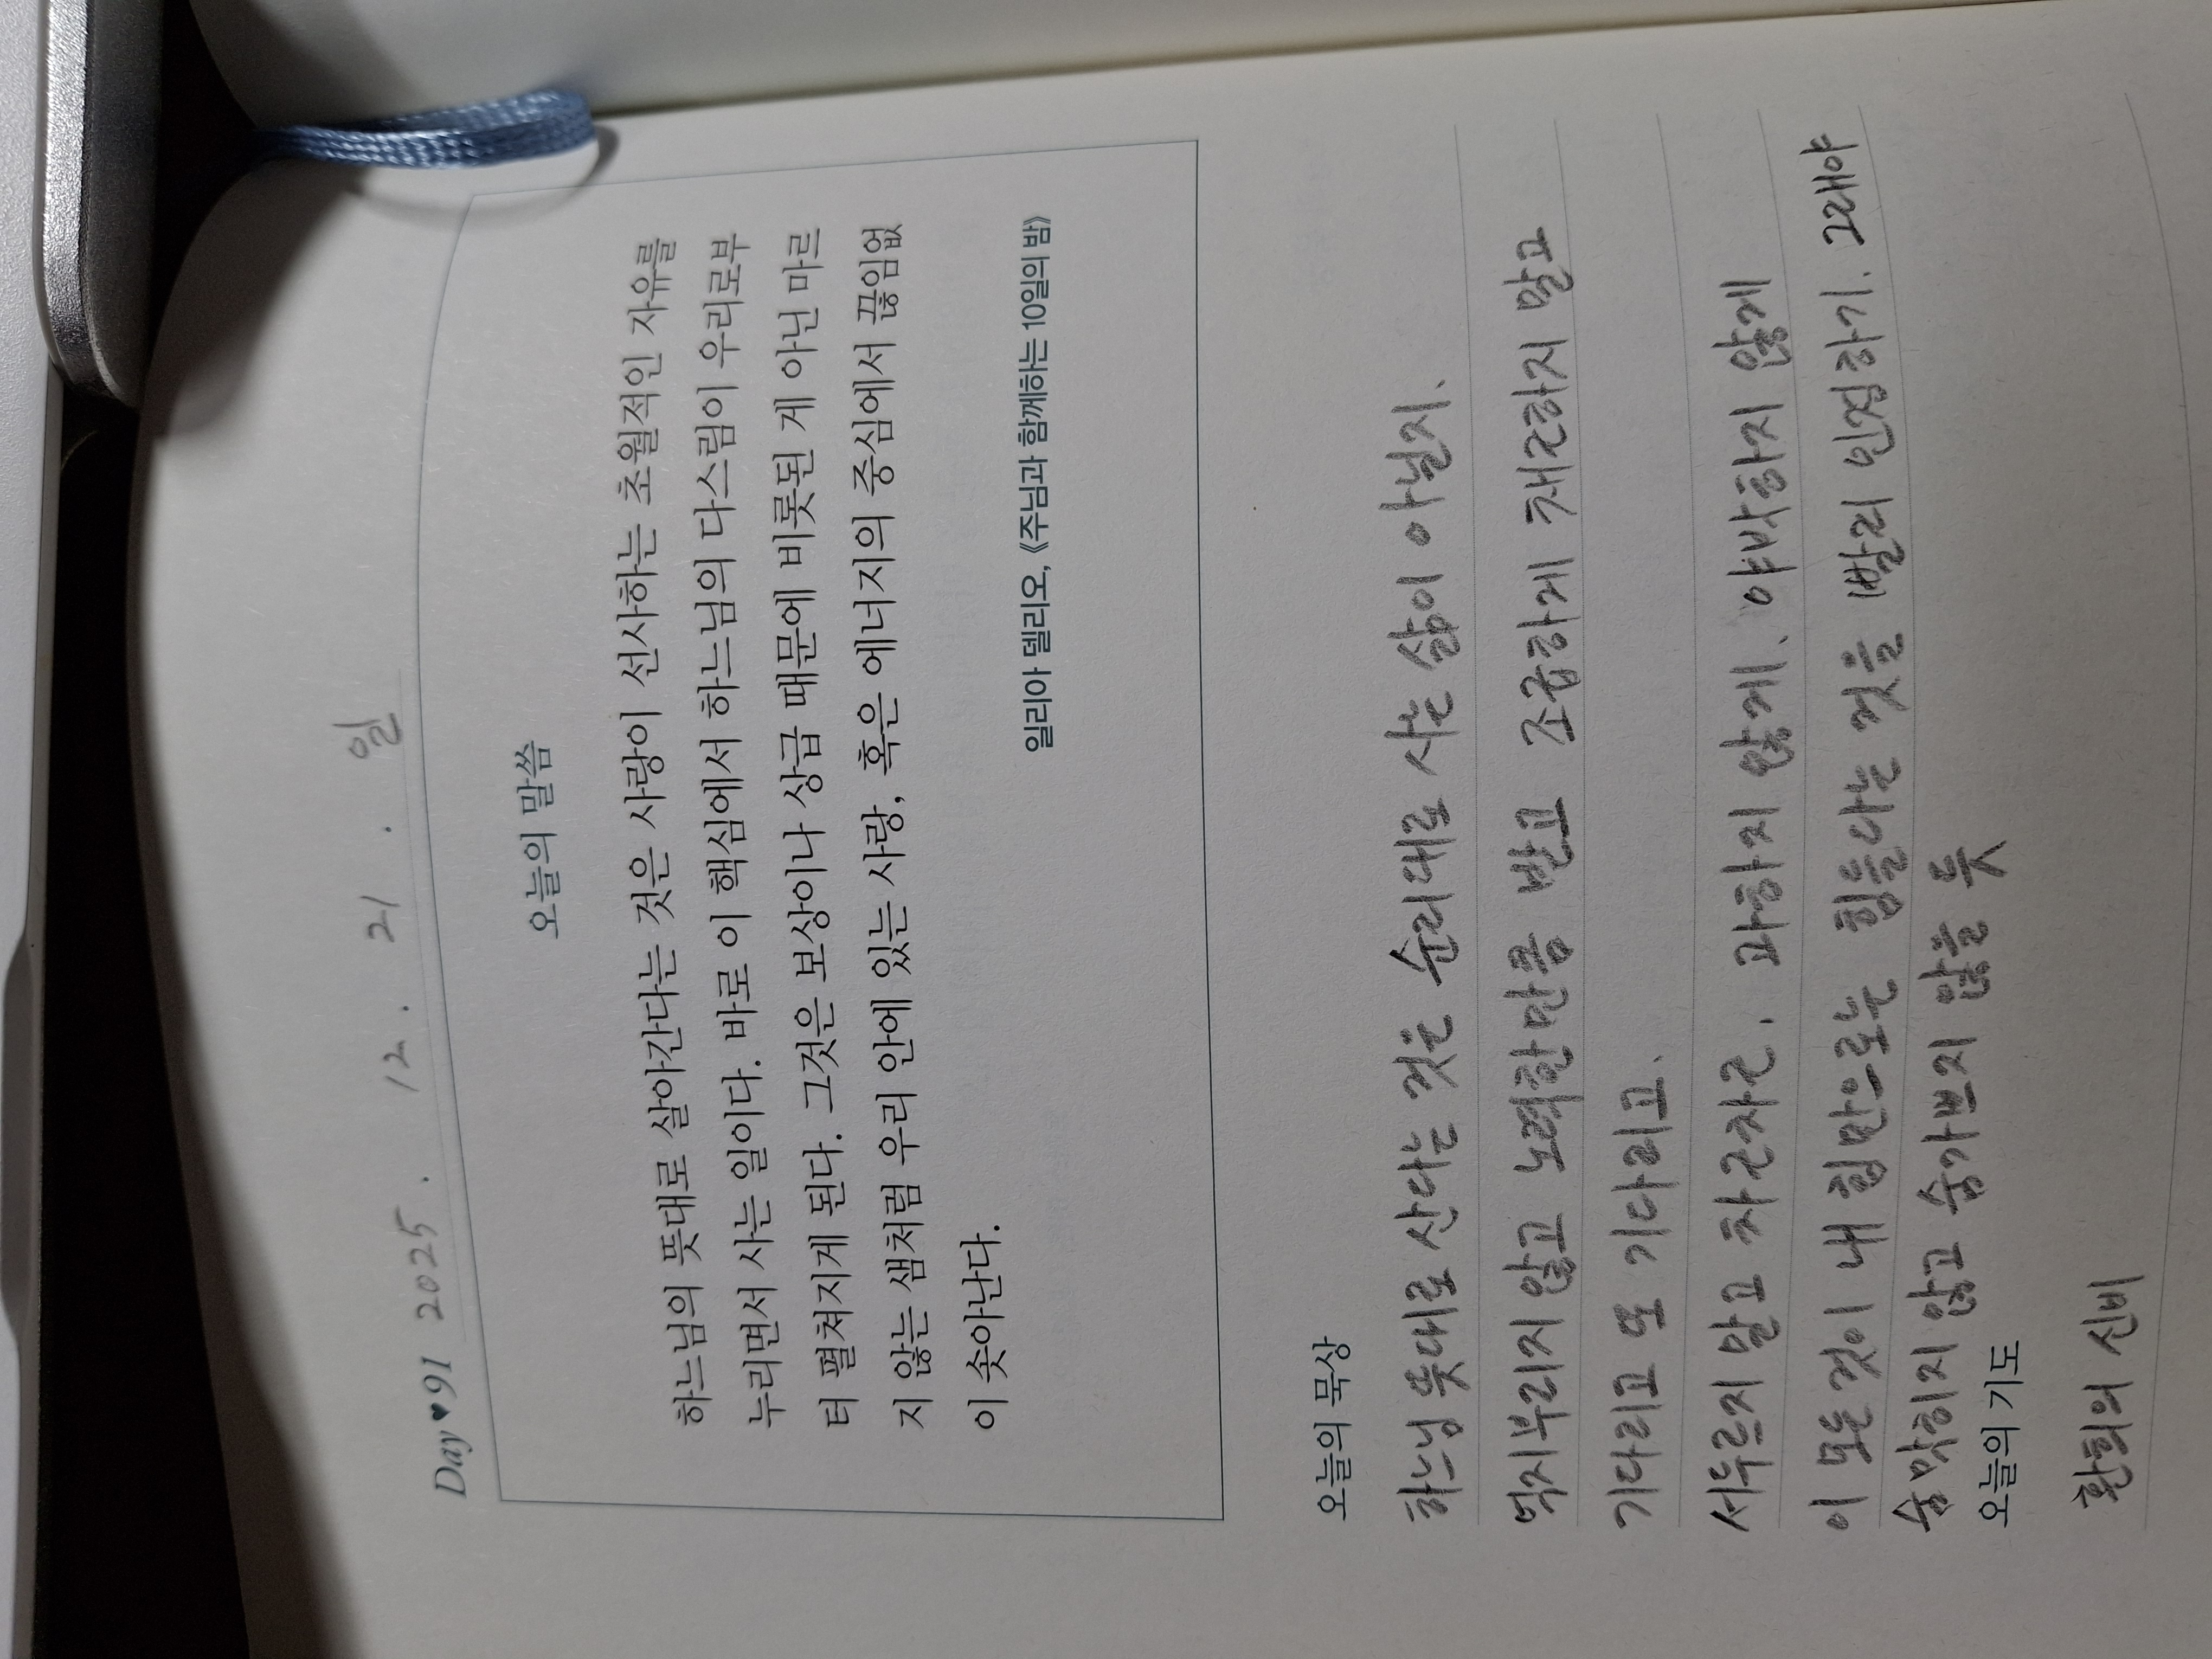 Day♥91 2025. 12. 21. 일
오늘의 말씀
하느님의 뜻대로 살아간다는 것은 사랑이 선사하는 초월적인 자유를
누리면서 사는 일이다. 바로 이 핵심에서 하느님의 다스림이 우리로부
터 펼쳐지게 된다. 그것은 보상이나 상급 때문에 비롯된 게 아닌 마르
지 않는 샘처럼 우리 안에 있는 사랑, 혹은 에너지의 중심에서 끊임없
이 솟아난다.
일리아 델리오, 《주님과 함께하는 10일의 밤》
오늘의 묵상
하느님 뜻대로 산다는 것은 순리대로 사는 삶이 아닐지.
억지부리지 않고 노력한만큼 받고 조급하게 재근하지 말고
기다리고 또 기다리고.
서두르지 말고 차근차근. 과하지 않게. 야박하지 않게
이 모든 것이 내 힘만으로는 힘들다는 것을 빨리 인정하기. 그래야
숨막히지 않고 숨가쁘지 않을 듯
오늘의 기도
환희의 신비